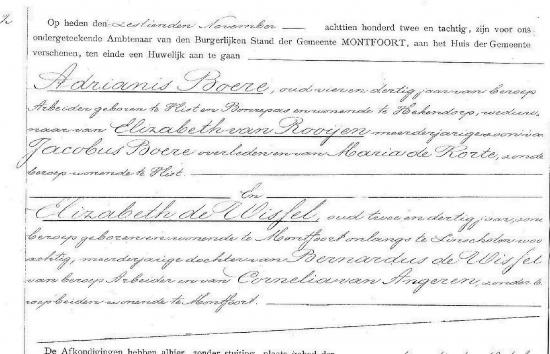 2
Op heden den zestienden November achttien honderd twee en tachtig, zijn voor ons
ondergeteekende Ambtenaar van den Burgerlijken Stand der Gemeente MONTFOORT, aan het Huis der Gemeente
verschenen, ten einde een Huwelijk aan te gaan
Adrianis Boere, oud vier en dertig jaar van beroep
Arbeider geboren te Vlist en Bonrepas en wonende te Hekendorp, weduw-
naar van Elizabeth van Rooijen meerderjarige zoon van
Jacobus Boere overleden en van Maria de Korte, zonder
beroep wonende te Vlist.
En
Elizabeth de Wissel, oud twee en dertig jaar, zonder
beroep geboren en wonende te Montfoort onlangs te Linschoten woon
achtig, meerderjarige dochter van Bernardus de Wissel
van beroep Arbeider en van Cornelia van Angeren, zonder be
roep beiden wonende te Montfoort.
De Afkondigingen hebben alhier, zonder stuiting, plaats gehad den